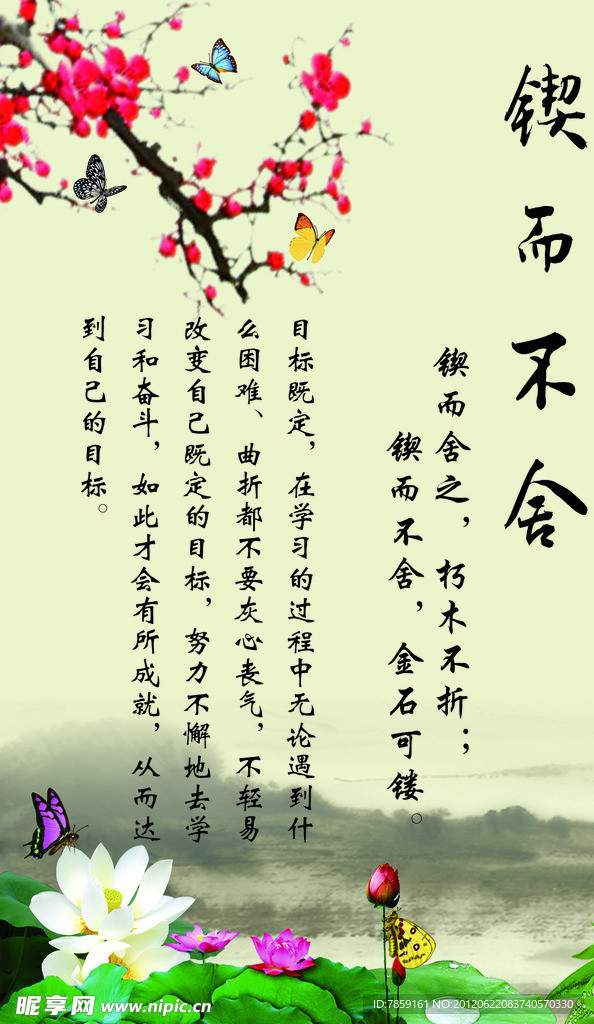 锲而不舍
锲而舍之，朽木不折；
锲而不舍，金石可镂。
目标既定，在学习的过程中无论遇到什
么困难、曲折都不要灰心丧气，不轻易
改变自己既定的目标，努力不懈地去学
习和奋斗，如此才会有所成就，从而达
到自己的目标。
昵享网 www.nipic.cn
ID:7859161 NO:20120622083740570330